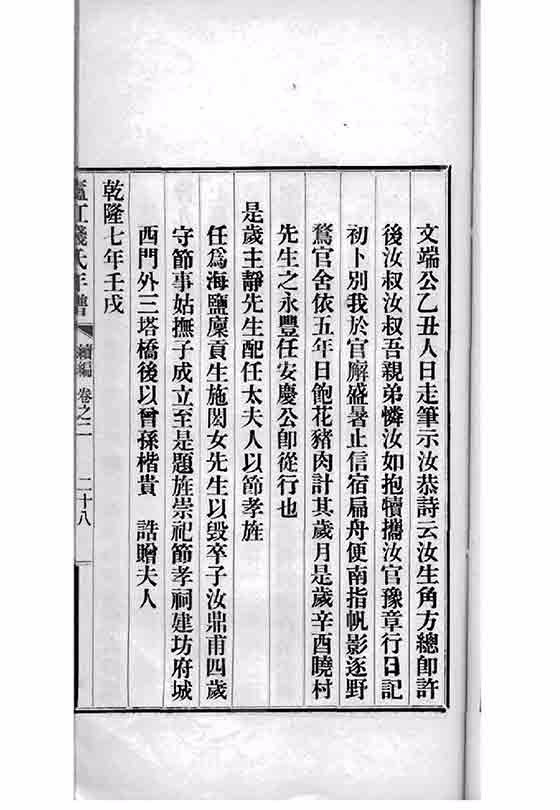 文端公乙丑人日走筆示汝恭詩云汝生角方總卽許
後汝叔汝叔吾親弟憐汝如抱犢攜汝官豫章行日記
初卜別我於官廨盛暑止信宿扁舟便南指帆影逐野
鶩官舍依五年日飽花豬肉計其歲月是歲辛酉曉村
先生之永豐任安慶公卽從行也
是歲主靜先生配任太夫人以節孝旌
任爲海鹽廩貢生施閎女先生以毀卒子汝鼎甫四歲
守節事姑撫子成立至是題旌崇祀節孝祠建坊府城
西門外三塔橋後以曾孫楷貴 誥贈夫人
乾隆七年壬戌
廬江錢氏年譜 續編 卷之二 二十八